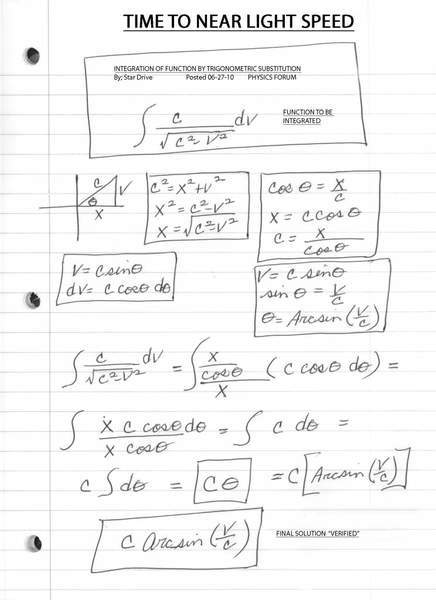 TIME TO NEAR LIGHT SPEED
INTEGRATION OF FUNCTION BY TRIGONOMETRIC SUBSTITUTION
By; Star Drive Posted 06-27-10 PHYSICS FORUM
∫ c/√(c²-v²) dv
FUNCTION TO BE
INTEGRATED
c v
θ
x
c² = x² + v²
x² = c² - v²
x = √(c² - v²)
cos θ = x/c
x = c cos θ
c = x/cos θ
v = c sin θ
dv = c cos θ dθ
v = c sin θ
sin θ = v/c
θ = Arcsin (v/c)
∫ c/√(c²-v²) dv = ∫ (x/cos θ)/x (c cos θ dθ) =
∫ x c cos θ dθ/(x cos θ) = ∫ c dθ =
c ∫ dθ = cθ = c [Arcsin (v/c)]
c Arcsin (v/c)
FINAL SOLUTION "VERIFIED"